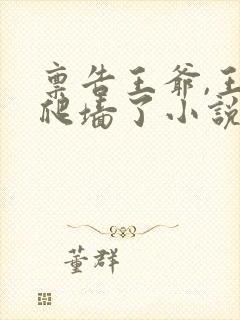 禀告王爷,王
爬墙了小說
董群